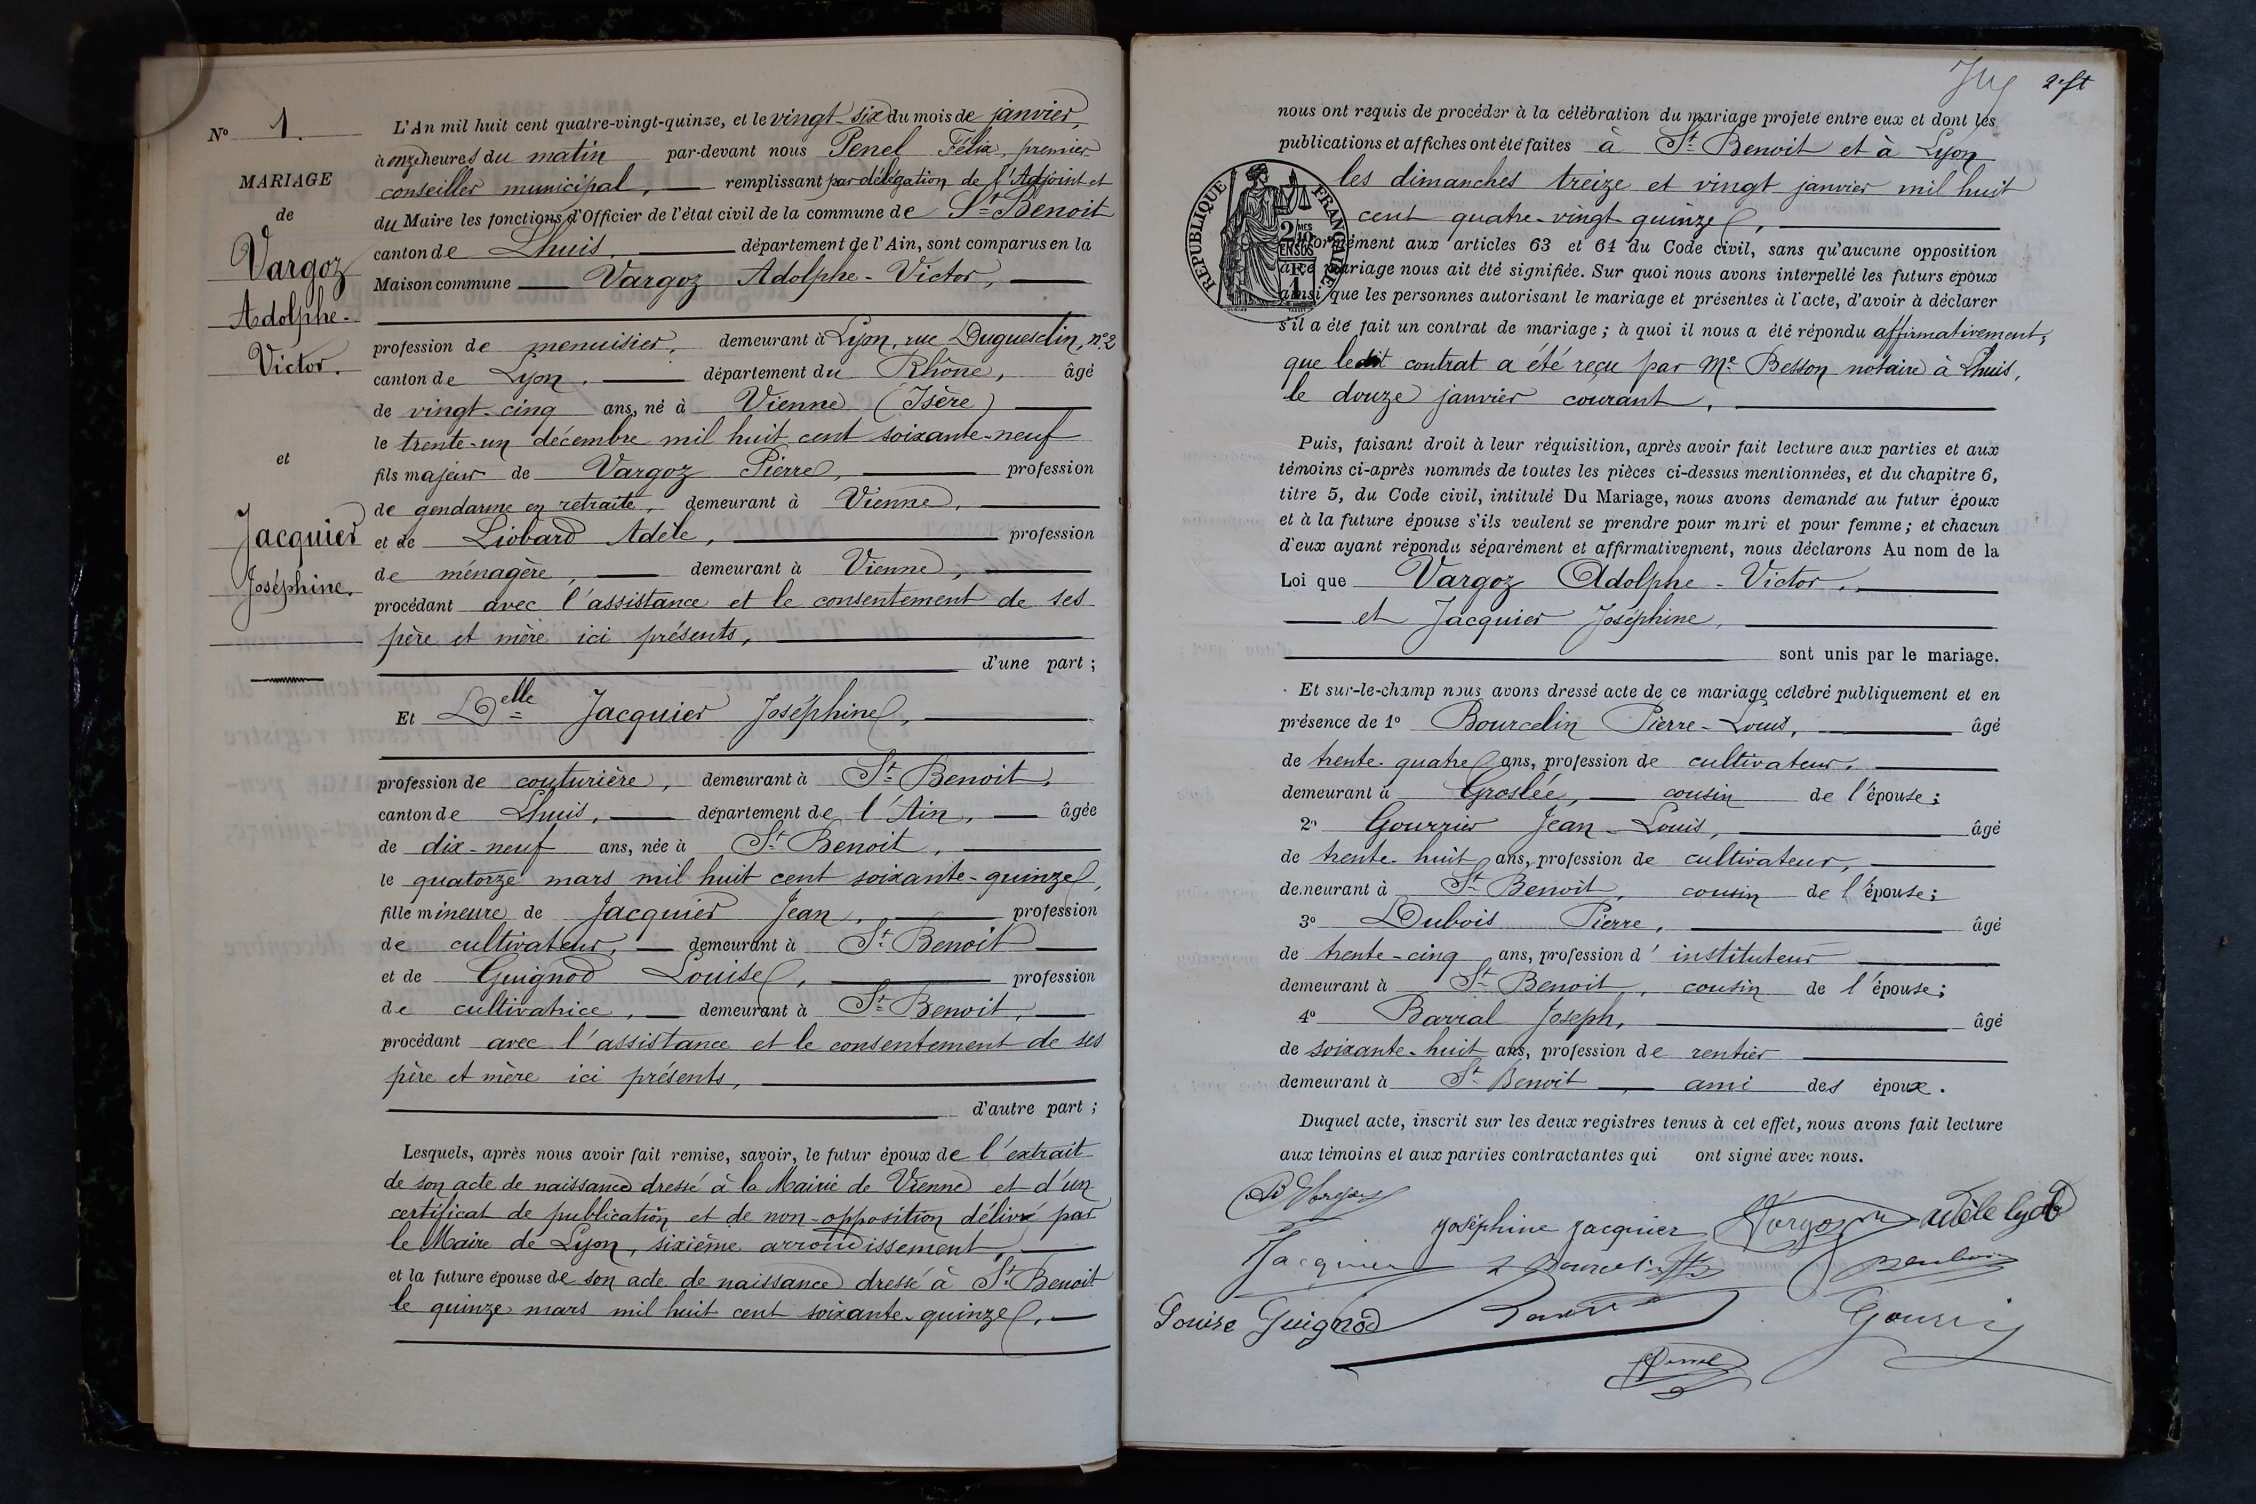 N° 1.
MARIAGE
de
Vargoz
Adolphe-
Victor.
et
Jacquier
Joséphine.
L'An mil huit cent quatre-vingt-quinze, et le vingt-six du mois de janvier,
à onze heures du matin par-devant nous Penel Félix, premier
conseiller municipal, remplissant par délégation de l'Adjoint et
du Maire les fonctions d'Officier de l'état civil de la commune de St Benoit
canton de Lhuis, département de l'Ain, sont comparus en la
Maison commune Vargoz Adolphe-Victor,
profession de menuisier, demeurant à Lyon, rue Duguesclin, n°2
canton de Lyon, département du Rhône, âgé
de vingt-cinq ans, né à Vienne (Isère)
le trente-un décembre mil huit cent soixante-neuf
fils majeur de Vargoz Pierre, profession
de gendarme en retraite, demeurant à Vienne,
et de Liobard Adèle, profession
de ménagère, demeurant à Vienne,
procédant avec l'assistance et le consentement de ses
père et mère ici présents,
d'une part ;
Et Delle Jacquier Joséphine,
profession de couturière, demeurant à St Benoit,
canton de Lhuis, département de l'Ain, âgée
de dix-neuf ans, née à St Benoit,
le quatorze mars mil huit cent soixante-quinze,
fille mineure de Jacquier Jean, profession
de cultivateur, demeurant à St Benoit
et de Guignod Louise, profession
de cultivatrice, demeurant à St Benoit,
procédant avec l'assistance et le consentement de ses
père et mère ici présents,
d'autre part ;
Lesquels, après nous avoir fait remise, savoir, le futur époux de l'extrait
de son acte de naissance dressé à la Mairie de Vienne et d'un
certificat de publication et de non-opposition délivré par
le Maire de Lyon, sixième arrondissement,
et la future épouse de son acte de naissance dressé à St Benoit
le quinze mars mil huit cent soixante-quinze,
2 ft
nous ont requis de procéder à la célébration du mariage projeté entre eux et dont les
publications et affiches ont été faites à St Benoit et à Lyon
les dimanches treize et vingt janvier mil huit
cent quatre-vingt quinze,
RÉPUBLIQUE FRANÇAISE.
2 MES
10
EN SUS
R
1
conformément aux articles 63 et 64 du Code civil, sans qu'aucune opposition
à ce mariage nous ait été signifiée. Sur quoi nous avons interpellé les futurs époux
ainsi que les personnes autorisant le mariage et présentes à l'acte, d'avoir à déclarer
s'il a été fait un contrat de mariage ; à quoi il nous a été répondu affirmativement,
que ledit contrat a été reçu par Me Besson notaire à Lhuis,
le douze janvier courant,
Puis, faisant droit à leur réquisition, après avoir fait lecture aux parties et aux
témoins ci-après nommés de toutes les pièces ci-dessus mentionnées, et du chapitre 6,
titre 5, du Code civil, intitulé Du Mariage, nous avons demandé au futur époux
et à la future épouse s'ils veulent se prendre pour mari et pour femme ; et chacun
d'eux ayant répondu séparément et affirmativement, nous déclarons Au nom de la
Loi que Vargoz Adolphe-Victor,
et Jacquier Joséphine,
sont unis par le mariage.
Et sur-le-champ nous avons dressé acte de ce mariage célébré publiquement et en
présence de 1° Bourcelin Pierre-Louis, âgé
de trente-quatre ans, profession de cultivateur,
demeurant à Groslée, cousin de l'épouse ;
2° Gourrier Jean-Louis, âgé
de trente-huit ans, profession de cultivateur,
demeurant à St Benoit, cousin de l'épouse ;
3° Dubois Pierre, âgé
de trente-cinq ans, profession d'instituteur
demeurant à St Benoit, cousin de l'épouse ;
4° Barral Joseph, âgé
de soixante-huit ans, profession de rentier
demeurant à St Benoit, ami des époux.
Duquel acte, inscrit sur les deux registres tenus à cet effet, nous avons fait lecture
aux témoins et aux parties contractantes qui ont signé avec nous.
Joséphine Jacquier Vargoz Adèle
Jacquier Bourcelin
Louise Guignod
Penel